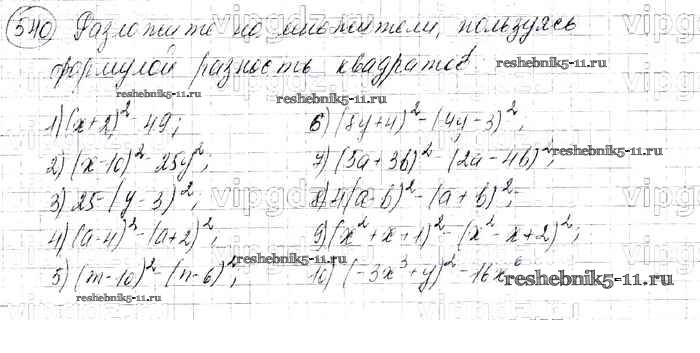 540 Разложите на множители, пользуясь
формулой разность квадратов:
1) (x+2)² - 49; 6) (8y+4)² - (4y-3)²;
2) (x-10)² - 25y²; 7) (5a+3b)² - (2a-4b)²;
3) 25 - (y-3)²; 8) 4(a-b)² - (a+b)²;
4) (a-4)² - (a+2)²; 9) (x²+x+1)² - (x²-x+2)²;
5) (m-10)² - (n-6)²; 10) (-3x³+y)² - 16x⁶
reshebnik5-11.ru
reshebnik5-11.ru
reshebnik5-11.ru
reshebnik5-11.ru
reshebnik5-11.ru
reshebnik5-11.ru
reshebnik5-11.ru
reshebnik5-11.ru